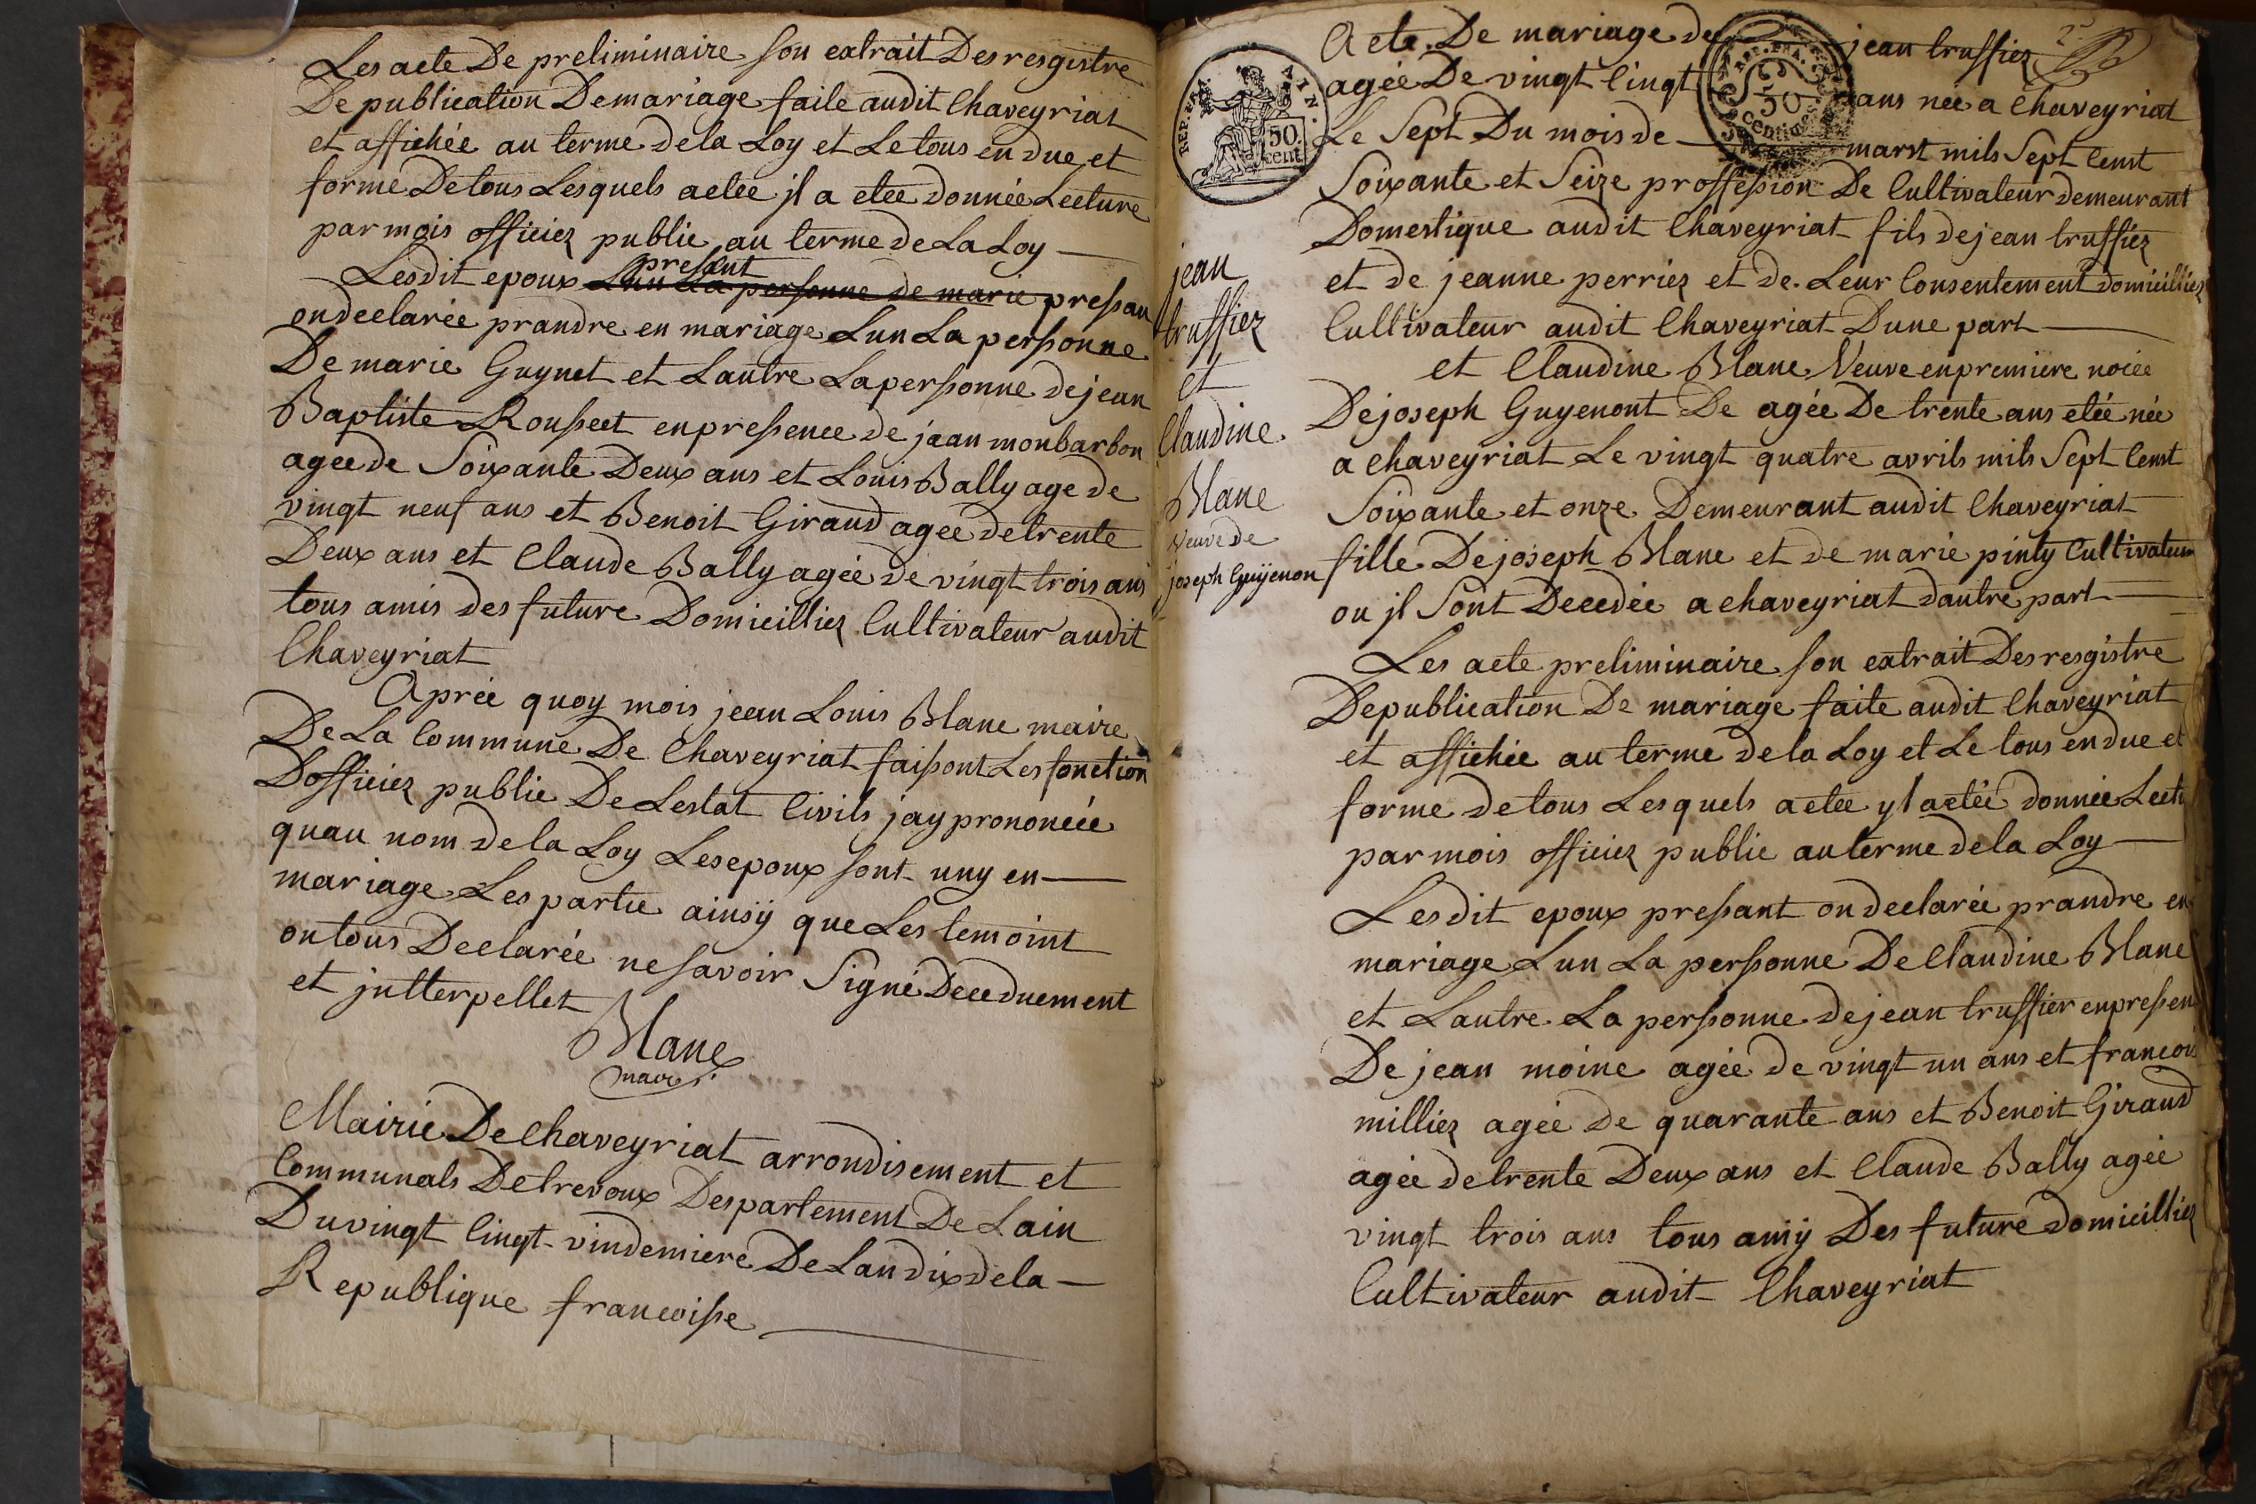 Les acte De preliminaire son extrait Des resgistre
De publication De mariage faite audit Chaveyriat
et affichée au terme de la Loy et Le tous en due et
forme De tous Lesquels actee jl a etee donnée Lecture
par mois officiez public au terme de La Loy
present
Lesdit epoux Lun La personne de marie pressan
on declarée prandre en mariage Lun La personne
De marie Guynet et Lautre La personne de jean
Baptiste Rousset en presence de jean monbarbon
agee de Soixante Deux ans et Louis Bally age de
vingt neuf ans et Benoit Giraud agee de trente
Deux ans et Claude Bally agée de vingt trois ans
tous amis des future Domicilliez Cultivateur audit
Chaveyriat
Aprée quoy mois jean Louis Blanc maire
De La Commune De Chaveyriat faisont Les fonction
Dofficiez public De Lestat Civils jay prononcéé
quau nom de la Loy Les epoux sont uny en
mariage Les partie ainsÿ que Les temoint
on tous Declarée ne savoir Signé De ce duement
et jntterpellet
Blanc
maire
Mairie De Chaveyriat arrondisement et
Communals De trevoux Despartement De Lain
Du vingt Cinqt vindemiere De Lan dix de la
Republique francoisse
Acte De mariage de jean truffiez
agée De vingt Cinqt ans née a Chaveyriat
Le Sept Du mois de marst mils Sept Censt
Soixante et Seize proffession De Cultivateur demeurant
Domestique audit Chaveyriat fils de jean truffiez
et de jeanne perriez et de Leur Consentement domicilliez
Cultivateur audit Chaveyriat Dune part
et Claudine Blanc Veuve en premiere nocée
De joseph Guyenont De agée De trente ans etée née
a Chaveyriat Le vingt quatre avrils mils Sept Censt
Soixante et onze Demeurant audit Chaveyriat
fille De joseph Blanc et de marie pinty Cultivateur
ou jl Sont Decedée a chaveyriat dautre part
Les acte preliminaire son extrait Des resgistre
De publication De mariage faite audit Chaveyriat
et affichée au terme de la Loy et Le tous en due et
forme de tous Lesquels actee yl a etée donnée Lectu
par mois officiez public au terme de la Loy
Lesdit epoux pressant on declarée prandre en
mariage Lun La personne De Claudine Blanc
et Lautre La personne de jean truffier en pressen
De jean moine agée de vingt un ans et francois
milliez agée de quarante ans et Benoit Giraud
agée de trente Deux ans et Claude Bally agée
vingt trois ans tous amÿ Des future domicilliez
Cultivateur audit Chaveyriat
jean
truffiez
et
Claudine
Blanc
veuve de
joseph Guÿenon
REP. FRA.
AIN.
50.
cent
REP. FRA.
50
centimes